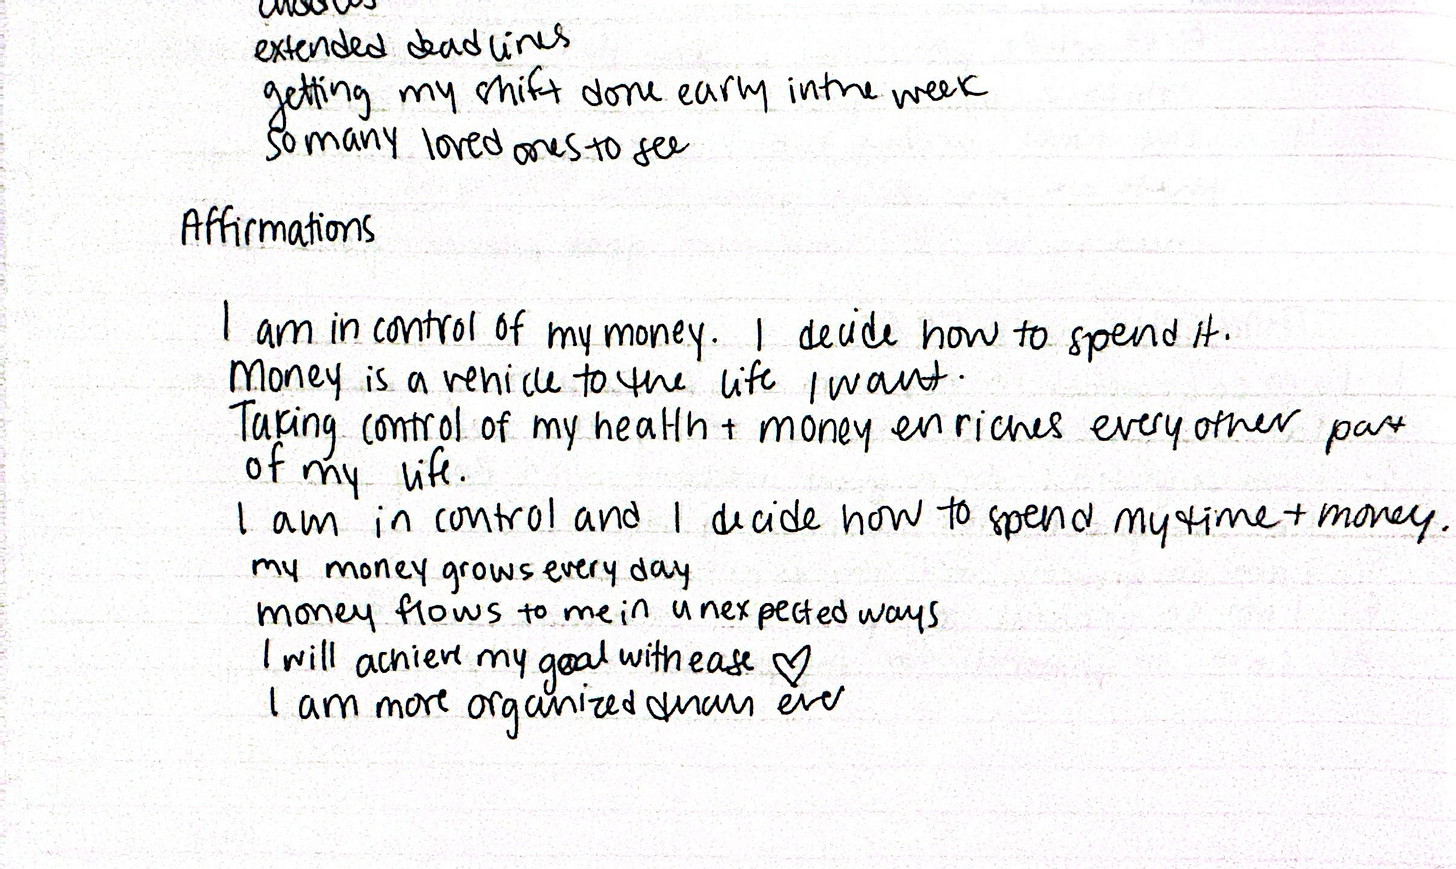 extended deadlines
getting my shift done early in the week
so many loved ones to see
Affirmations
I am in control of my money. I decide how to spend it.
Money is a vehicle to the life I want.
Taking control of my health + money enriches every other part
of my life.
I am in control and I decide how to spend my time + money.
my money grows every day
money flows to me in unexpected ways
I will achieve my goal with ease ♡
I am more organized than ever